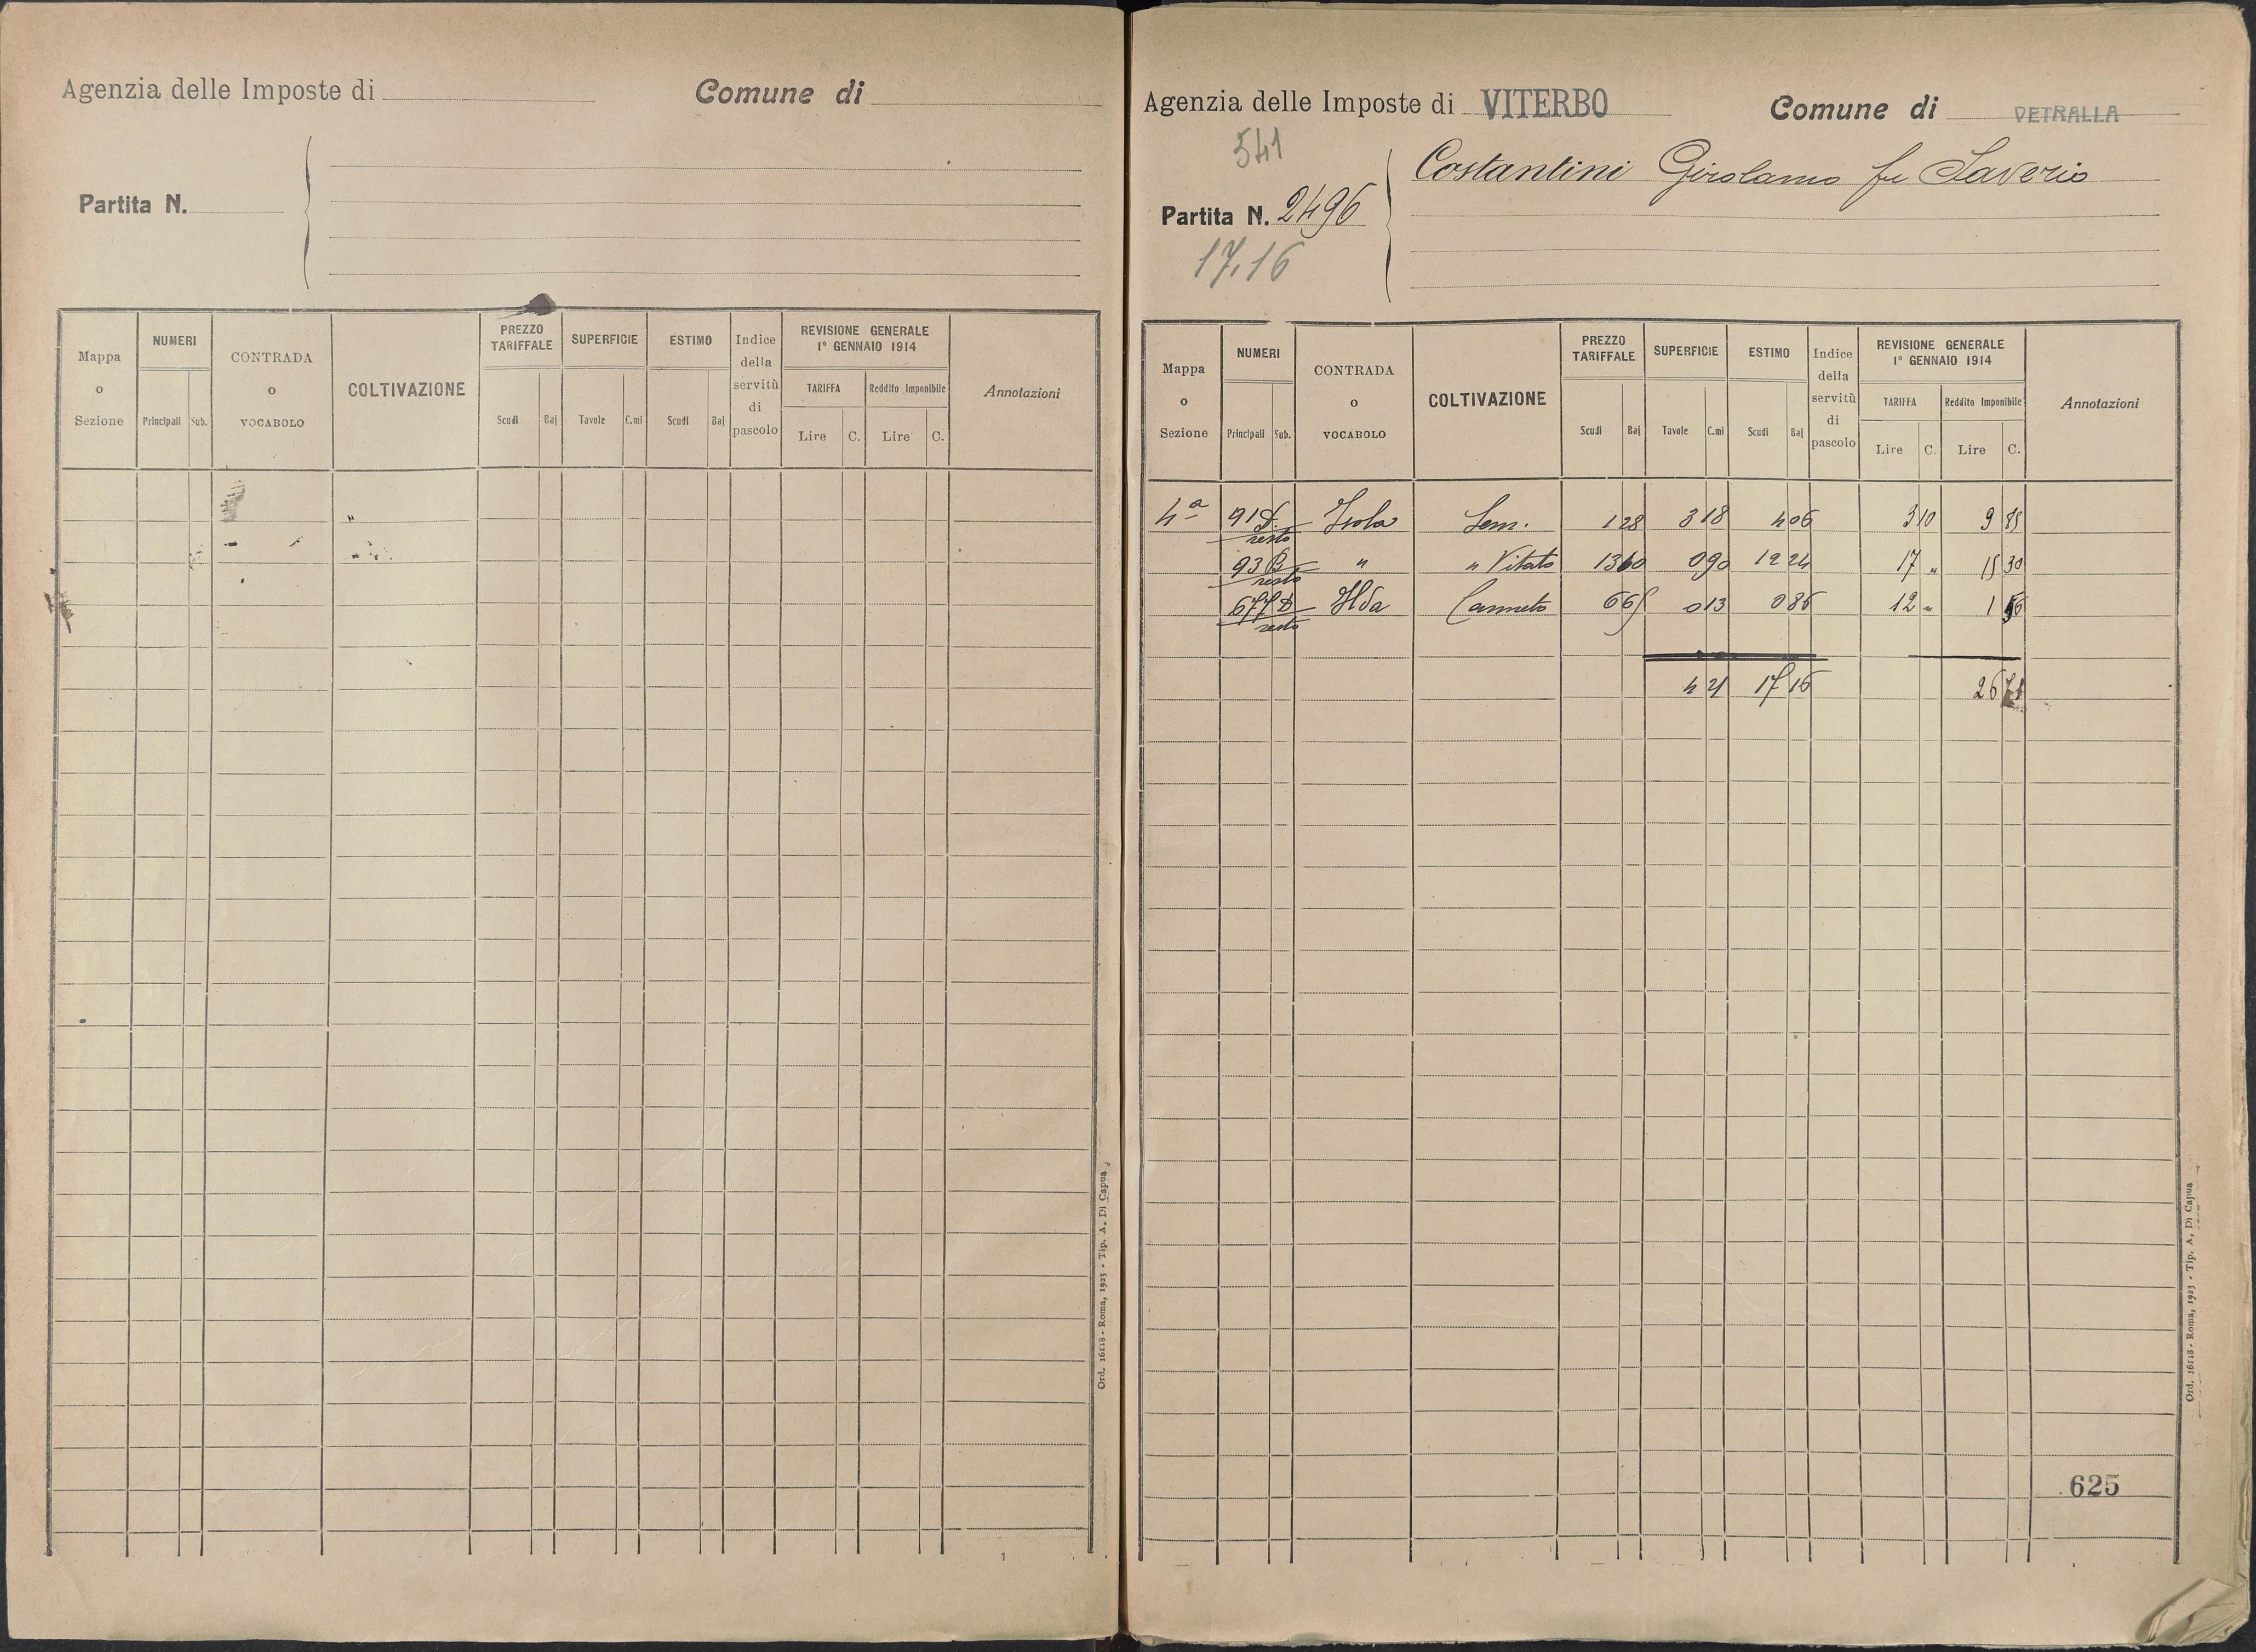 Agenzia delle Imposte di
Comune di
Partita N.
Mappa o Sezione
NUMERI
Principali Sub.
CONTRADA o VOCABOLO
COLTIVAZIONE
PREZZO TARIFFALE
Scudi Baj
SUPERFICIE
Tavole C.mi
ESTIMO
Scudi Baj
Indice della servitù di pascolo
REVISIONE GENERALE
1° GENNAIO 1914
TARIFFA Reddito Imponibile
Lire C. Lire C.
Annotazioni
Ord. 16118 - Roma, 1923 - Tip. A. Di Capua
Agenzia delle Imposte di VITERBO
Comune di VETRALLA
541
Costantini Girolamo fu Saverio
Partita N. 2496
17.16
Mappa o Sezione
NUMERI
Principali Sub.
CONTRADA o VOCABOLO
COLTIVAZIONE
PREZZO TARIFFALE
Scudi Baj
SUPERFICIE
Tavole C.mi
ESTIMO
Scudi Baj
Indice della servitù di pascolo
REVISIONE GENERALE
1° GENNAIO 1914
TARIFFA Reddito Imponibile
Lire C. Lire C.
Annotazioni
4a 91 D. Isola Sem. 1 28 3 18 4 06 3 10 9 85
resto
93 B " " Vitato 13 60 0 90 12 24 17 " 15 30
resto
677 D Ilda Canneto 6 65 0 13 0 86 12 " 1 56
resto
4 21 17 16 26 71
625
Ord. 16118 - Roma, 1923 - Tip. A. Di Capua